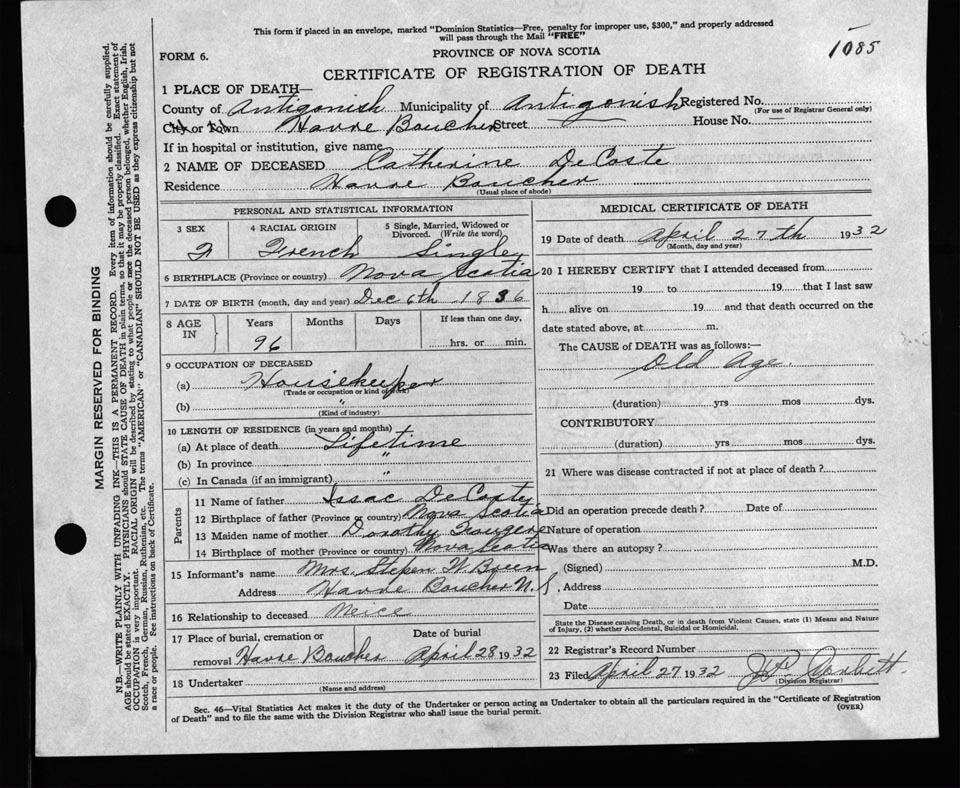 This form if placed in an envelope, marked "Dominion Statistics—Free, penalty for improper use, $300," and properly addressed
will pass through the Mail "FREE"
1085
FORM 6.
PROVINCE OF NOVA SCOTIA
CERTIFICATE OF REGISTRATION OF DEATH
1 PLACE OF DEATH—
County of Antigonish Municipality of Antigonish Registered No.
(For use of Registrar General only)
City or Town Havre Boucher Street House No. —
If in hospital or institution, give name
2 NAME OF DECEASED Catherine DeCoste
Residence Havre Boucher
(Usual place of abode)
PERSONAL AND STATISTICAL INFORMATION
3 SEX
F
4 RACIAL ORIGIN
French
5 Single, Married, Widowed or
Divorced. (Write the word)
Single
6 BIRTHPLACE (Province or country) Nova Scotia
7 DATE OF BIRTH (month, day and year) Dec 6th 1836
8 AGE IN
Years Months Days If less than one day,
96
hrs. or min.
9 OCCUPATION OF DECEASED
(a) Housekeeper
(Trade or occupation or kind of work)
(b) "
(Kind of industry)
10 LENGTH OF RESIDENCE (in years and months)
(a) At place of death Lifetime
(b) In province "
(c) In Canada (if an immigrant)
Parents
11 Name of father Issac DeCoste
12 Birthplace of father (Province or country) Nova Scotia
13 Maiden name of mother Dorothy
14 Birthplace of mother (Province or country) Nova Scotia
15 Informant's name Mrs. Stepen W.
Address Havre Boucher N.S.
16 Relationship to deceased Neice
17 Place of burial, cremation or
removal Havre Boucher
Date of burial
April 28 1932
18 Undertaker
(Name and address)
MEDICAL CERTIFICATE OF DEATH
19 Date of death April 27th 1932
(Month, day and year)
20 I HEREBY CERTIFY that I attended deceased from
19 to 19 that I last saw
h alive on 19 and that death occurred on the
date stated above, at m.
The CAUSE of DEATH was as follows:—
Old Age.
(duration) yrs mos dys.
CONTRIBUTORY
(duration) yrs mos dys.
21 Where was disease contracted if not at place of death ?
Did an operation precede death ? Date of
Nature of operation
Was there an autopsy ?
(Signed) M.D.
Address
Date
State the Disease causing Death, or in death from Violent Causes, state (1) Means and Nature
of Injury, (2) whether Accidental, Suicidal or Homicidal.
22 Registrar's Record Number
23 Filed April 27 1932
(Division Registrar)
Sec. 46—Vital Statistics Act makes it the duty of the Undertaker or person acting as Undertaker to obtain all the particulars required in the "Certificate of Registration
of Death" and to file the same with the Division Registrar who shall issue the burial permit.
(OVER)
MARGIN RESERVED FOR BINDING
N.B.—WRITE PLAINLY WITH UNFADING INK—THIS IS A PERMANENT RECORD. Every item of information should be carefully supplied.
AGE should be stated EXACTLY. PHYSICIANS should STATE CAUSE OF DEATH in plain terms, so that it may be properly classified. Exact statement of
OCCUPATION is very important. RACIAL ORIGIN will be described by stating to what people or race the deceased person belonged, whether English, Irish,
Scotch, French, German, Russian, Ruthenian, etc. The terms "AMERICAN" or "CANADIAN" SHOULD NOT BE USED as they express citizenship but not
a race or people. See instructions on back of Certificate.